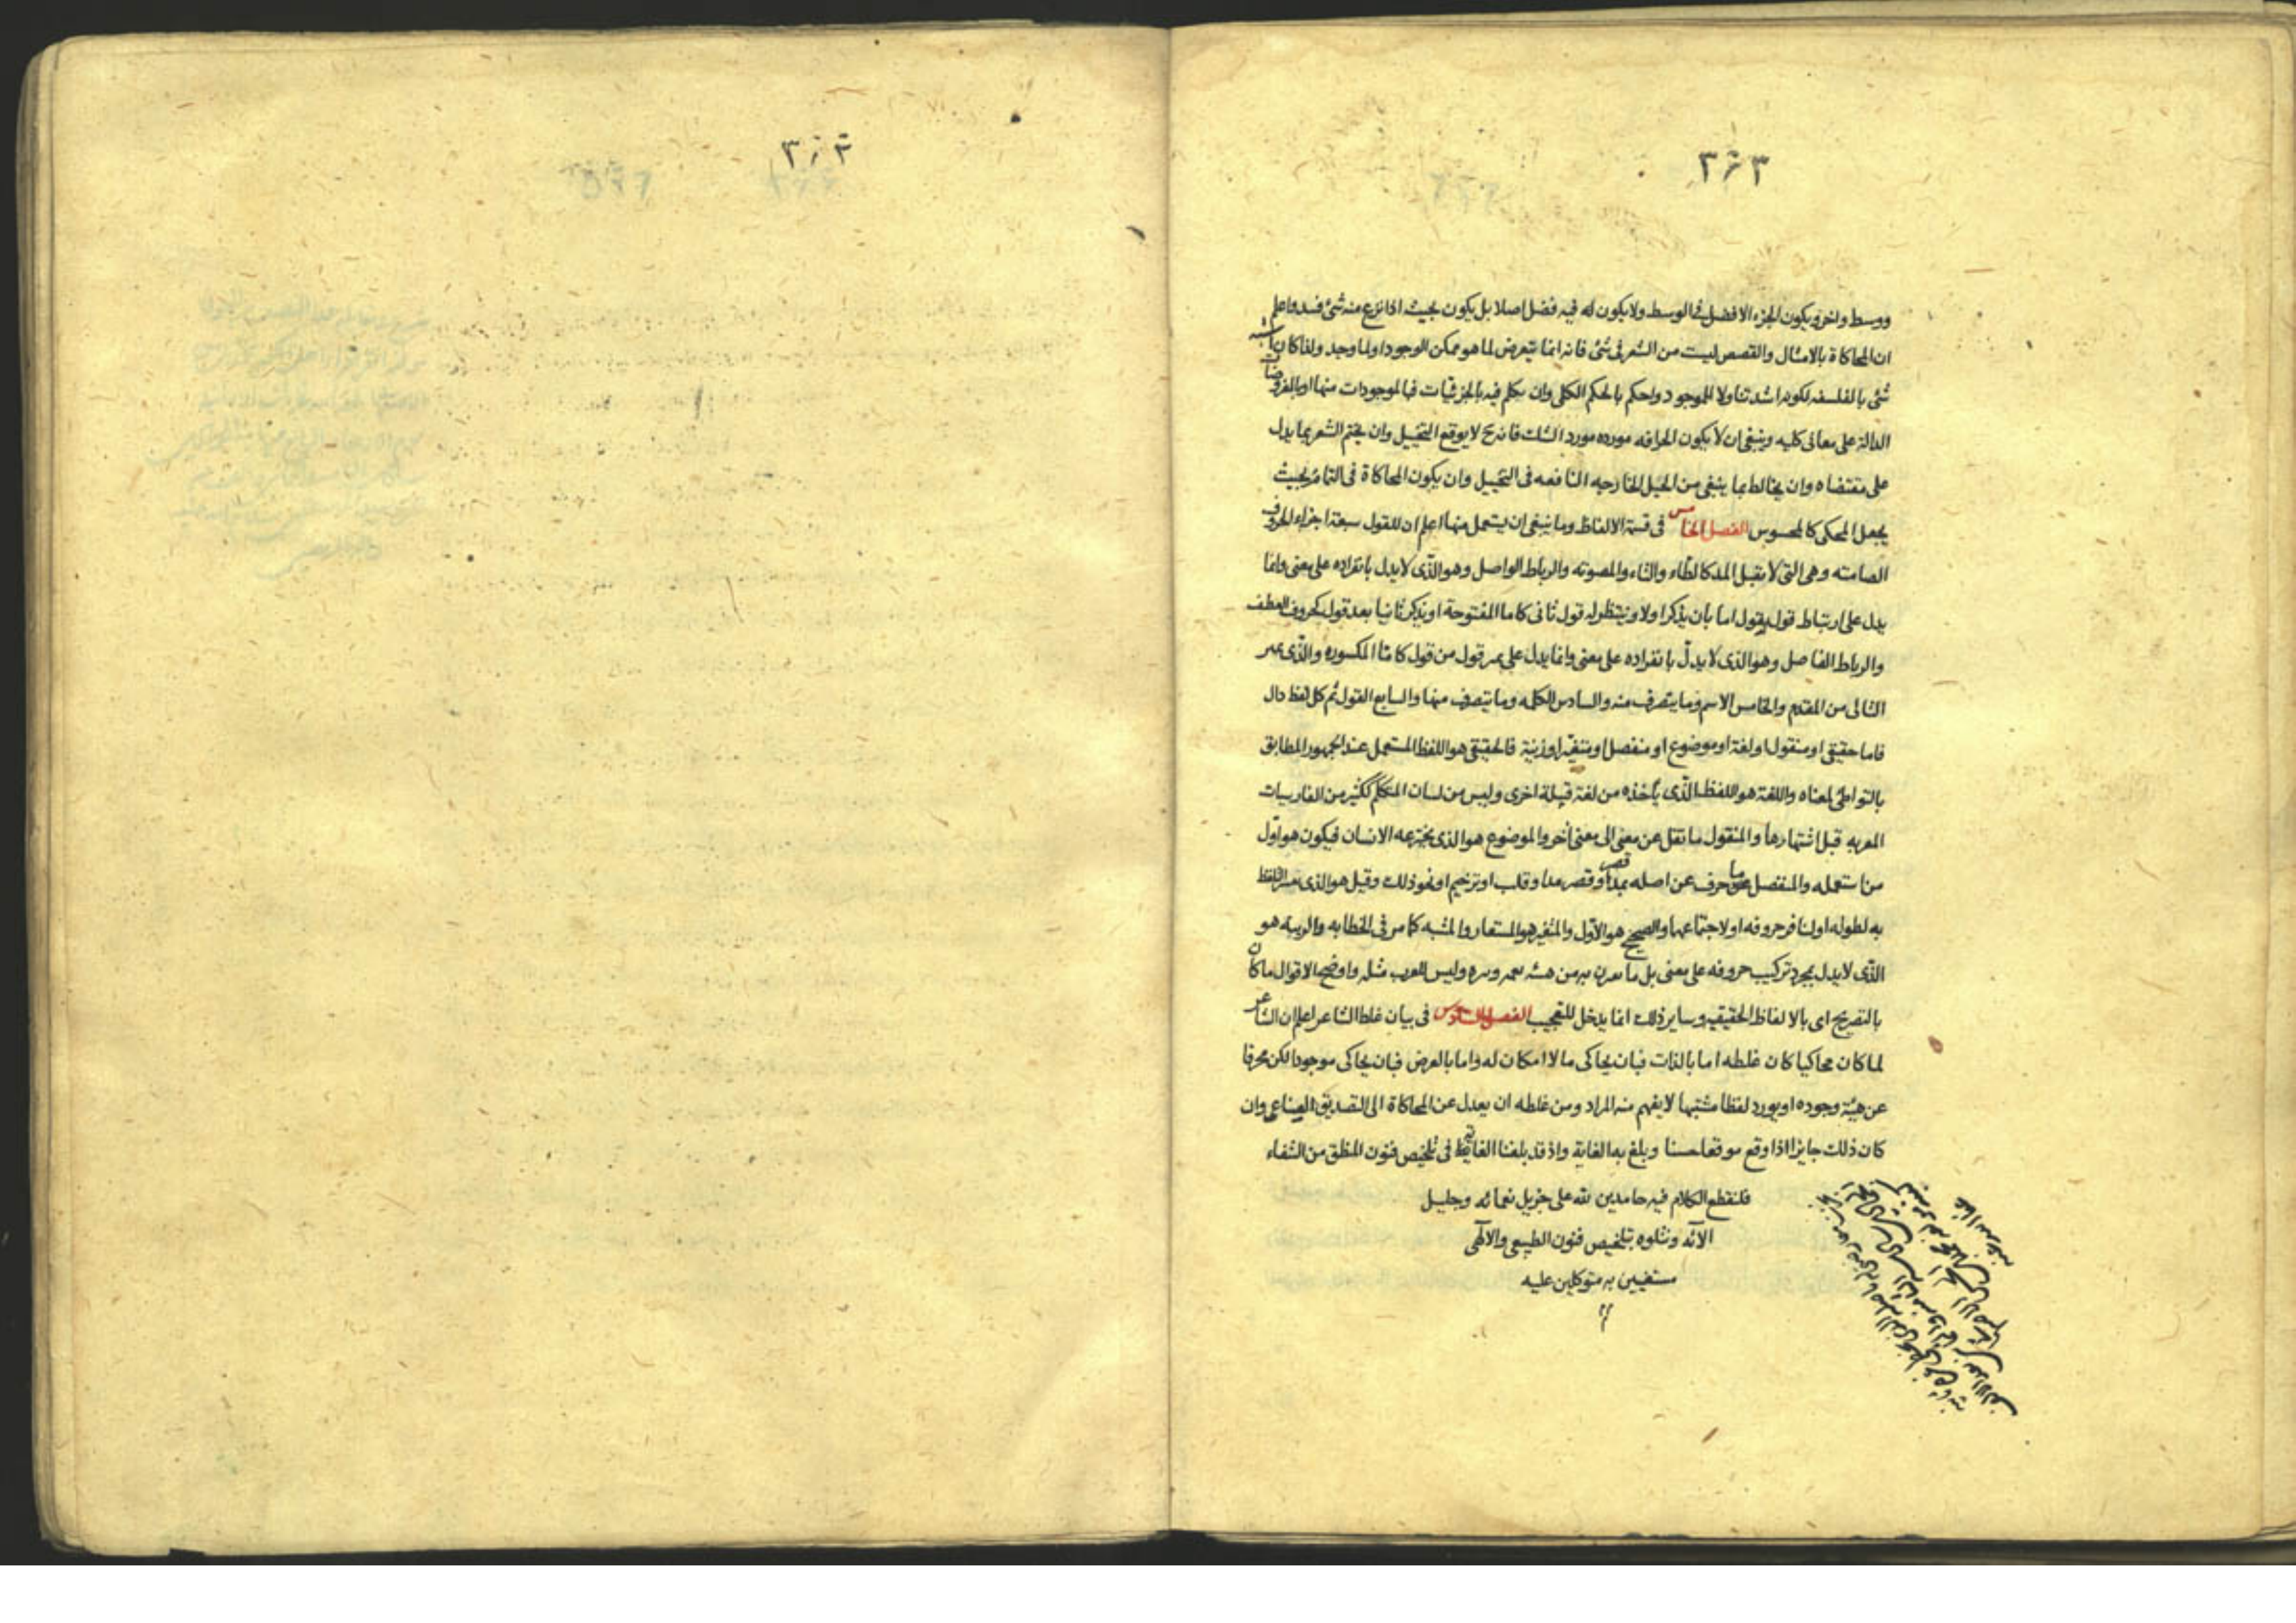 ٣۶٣
ووسط واخر ويكون الجزء الافضل فى الوسط ولا يكون له فيه فضل اصلا بل يكون بحيث اذا نزع منه شئ فسد واعلم
ان المحاكاة بالامثال والقصص ليست من الشعر فى شئ فانه انما يتعرض لما هو ممكن الوجود او لما وجد ولذا كان اشبه
شئ بالفلسفه لكونه اشد تناولا للموجود واحكم بالحكم الكلى وان تكلم فيه بالجزئيات فالموجودات منها او المفروضات
الدالة على معانى كليه وينبغى ان لا يكون الخرافه مورده مورد الشك فانه ح لا يوقع التخييل وان يختم الشعر بما يدل
على مقتضاه وان يخالط بما ينبغى من الحيل الخارجيه النافعه فى التخييل وان يكون المحاكاة فى التاثير بحيث
يجعل المحكى كالمحسوس الفصل الخامس فى قسمة الالفاظ وما ينبغى ان يستعمل منها اعلم ان للقول سبعة اجزاء الحروف
الصامته وهى التى لا يقبل المد كالطاء والتاء والمصوته والرباط الواصل وهو الذى لا يدل بانفراده على معنى وانما
يدل على ارتباط قول بقول اما بان يذكر اولا وينتظر له قول ثانى كاما المفتوحة او يذكر ثانيا بعد قول كحروف العطف
والرباط الفاصل وهو الذى لا يدلّ بانفراده على معنى وانما يدل على تميز قول من قول كامّا المكسوره والذى يميز
التالى من المقدم والخامس الاسم وما يتصرف منه والسادس الكلمه وما يتصرف منها والسابع القول ثم كل لفظ دال
فاما حقيقى او منقول او لغة او موضوع او منفصل او متغيّر او زينة فالحقيقى هو اللفظ المستعمل عند الجمهور المطابق
بالتواطئ لمعناه واللغة هو اللفظ الذى يأخذه من لغة قبيلة اخرى وليس من لسان المتكلم ككثير من الفارسيات
المعربه قبل اشتهارها والمنقول ما نقل عن معنى الى معنى آخر والموضوع هو الذى يخترعه الانسان فيكون هو اوّل
من استعمله والمنفصل ما حرف عن اصله بمد او قصر مد او قلب او ترخيم او نحو ذلك وقيل هو الذى تعسر اللفظ
به لطوله او لتنافر حروفه او لاجتماعهما والصحيح هو الاوّل والمتغير هو المستعار والمشبه كما مر فى الخطابه والزينه هو
الذى لا يدل بمجرد تركيب حروفه على معنى بل ما يقرن به من هيئة نغمه ونبره وليس للعرب مثله واوضح الاقوال ما كان
بالتصريح اى بالالفاظ الحقيقيه وساير ذلك انما يدخل للتعجيب الفصل السادس فى بيان غلط الشاعر اعلم ان الشاعر
لما كان محاكيا كان غلطه اما بالذات فبان يحاكى ما لا امكان له واما بالعرض فبان يحاكى موجودا لكن محرفا
عن هيئة وجوده او يورد لفظا مشتبها لا يفهم منه المراد ومن غلطه ان يعدل عن المحاكاة الى التصديق الصناعى وان
كان ذلك جايزا اذا وقع موقعا حسنا وبلغ به الغاية واذ قد بلغنا الغاية فى تلخيص فنون المنطق من الشفاء
فلنقطع الكلام فيه حامدين لله على جزيل نعمائه وجليل
الآئه ونتلوه بتلخيص فنون الطبيعى والالهى
مستعينين به متوكلين عليه